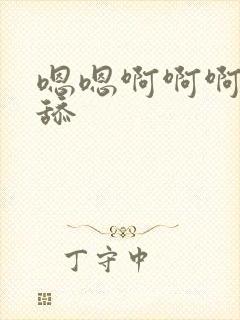 嗯嗯啊啊啊
舔
丁守中